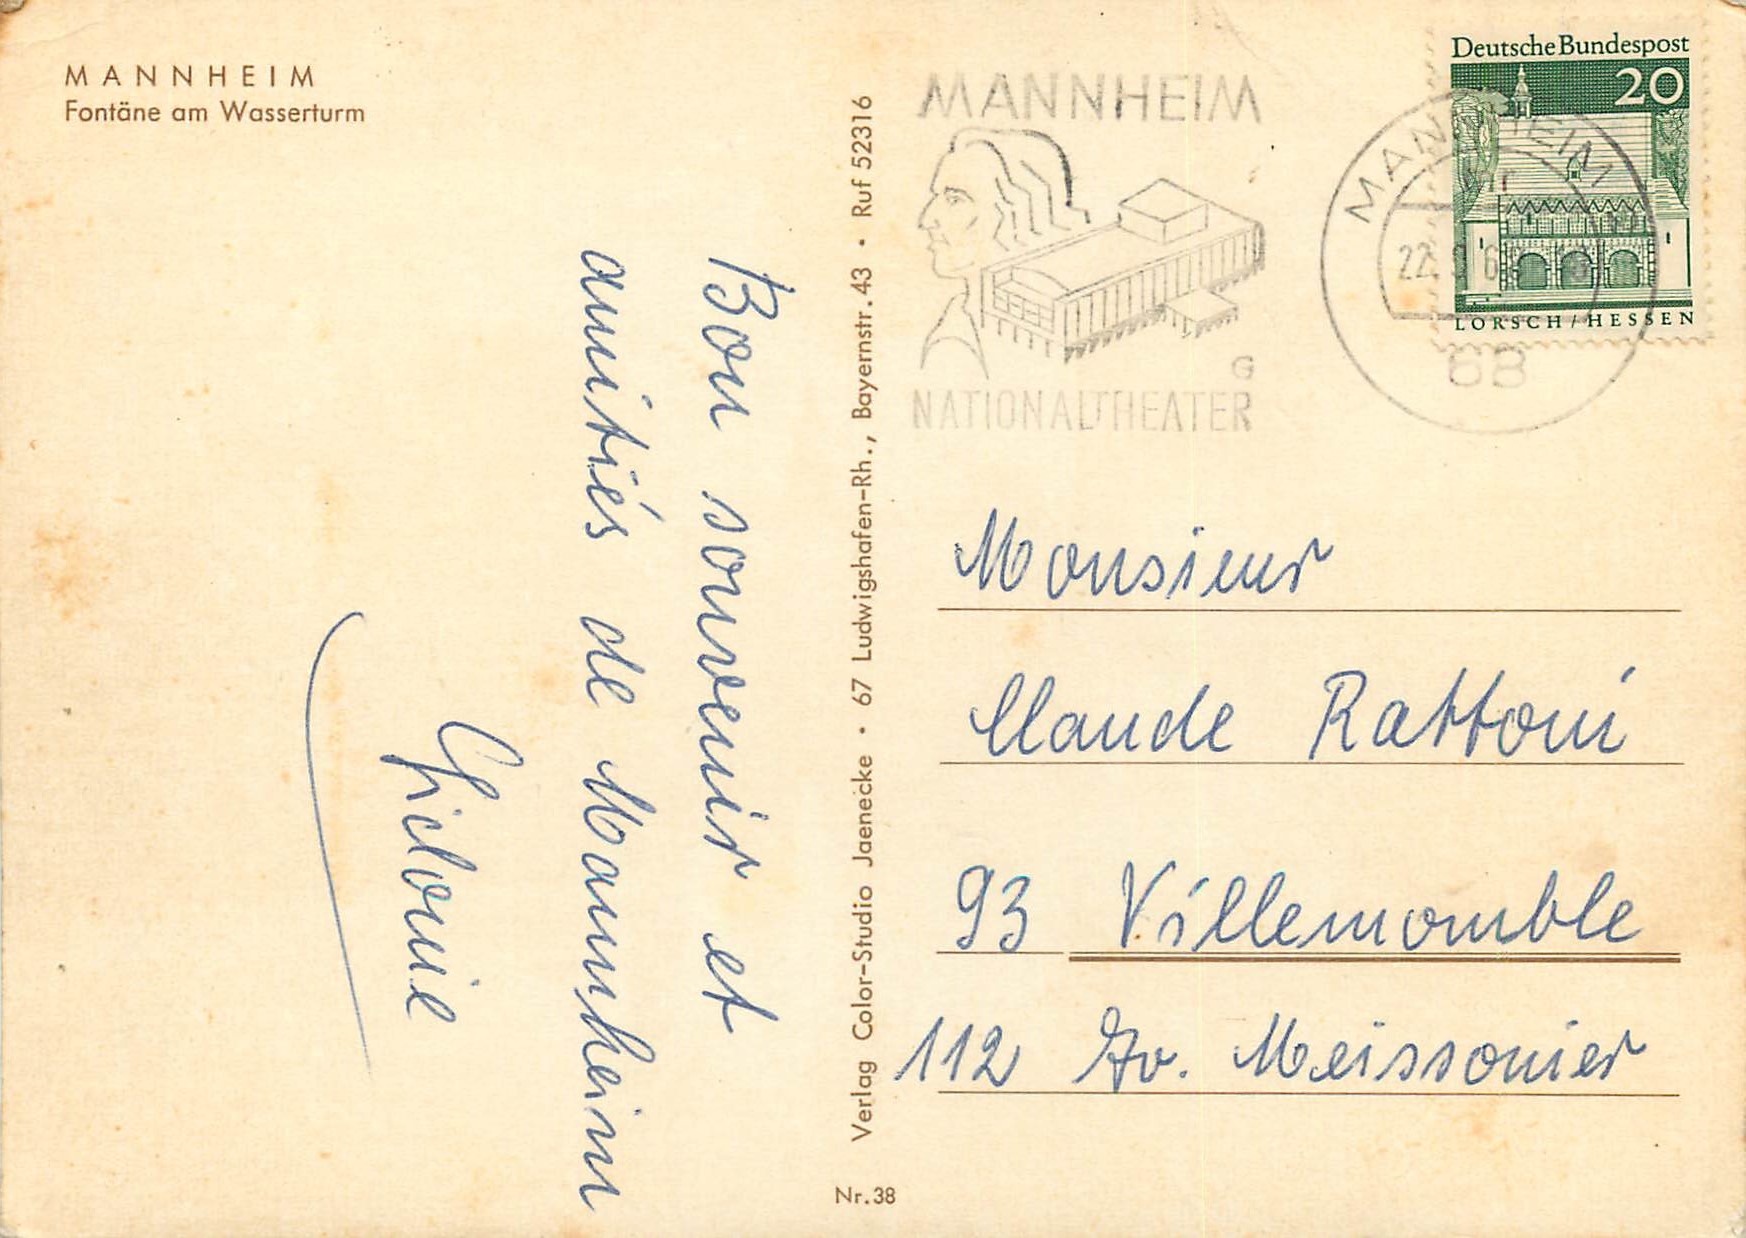 MANNHEIM
Fontäne am Wasserturm
Bon souvenir et
amitiés de Mannheim
Verlag Color-Studio Jaenecke • 67 Ludwigshafen-Rh., Bayernstr. 43 • Ruf 52316
Nr. 38
MANNHEIM
G
NATIONALTHEATER
Deutsche Bundespost
20
LORSCH/HESSEN
MANNHEIM
68
Monsieur
Claude Rattoni
93 Villemomble
112 Av. Meissonier